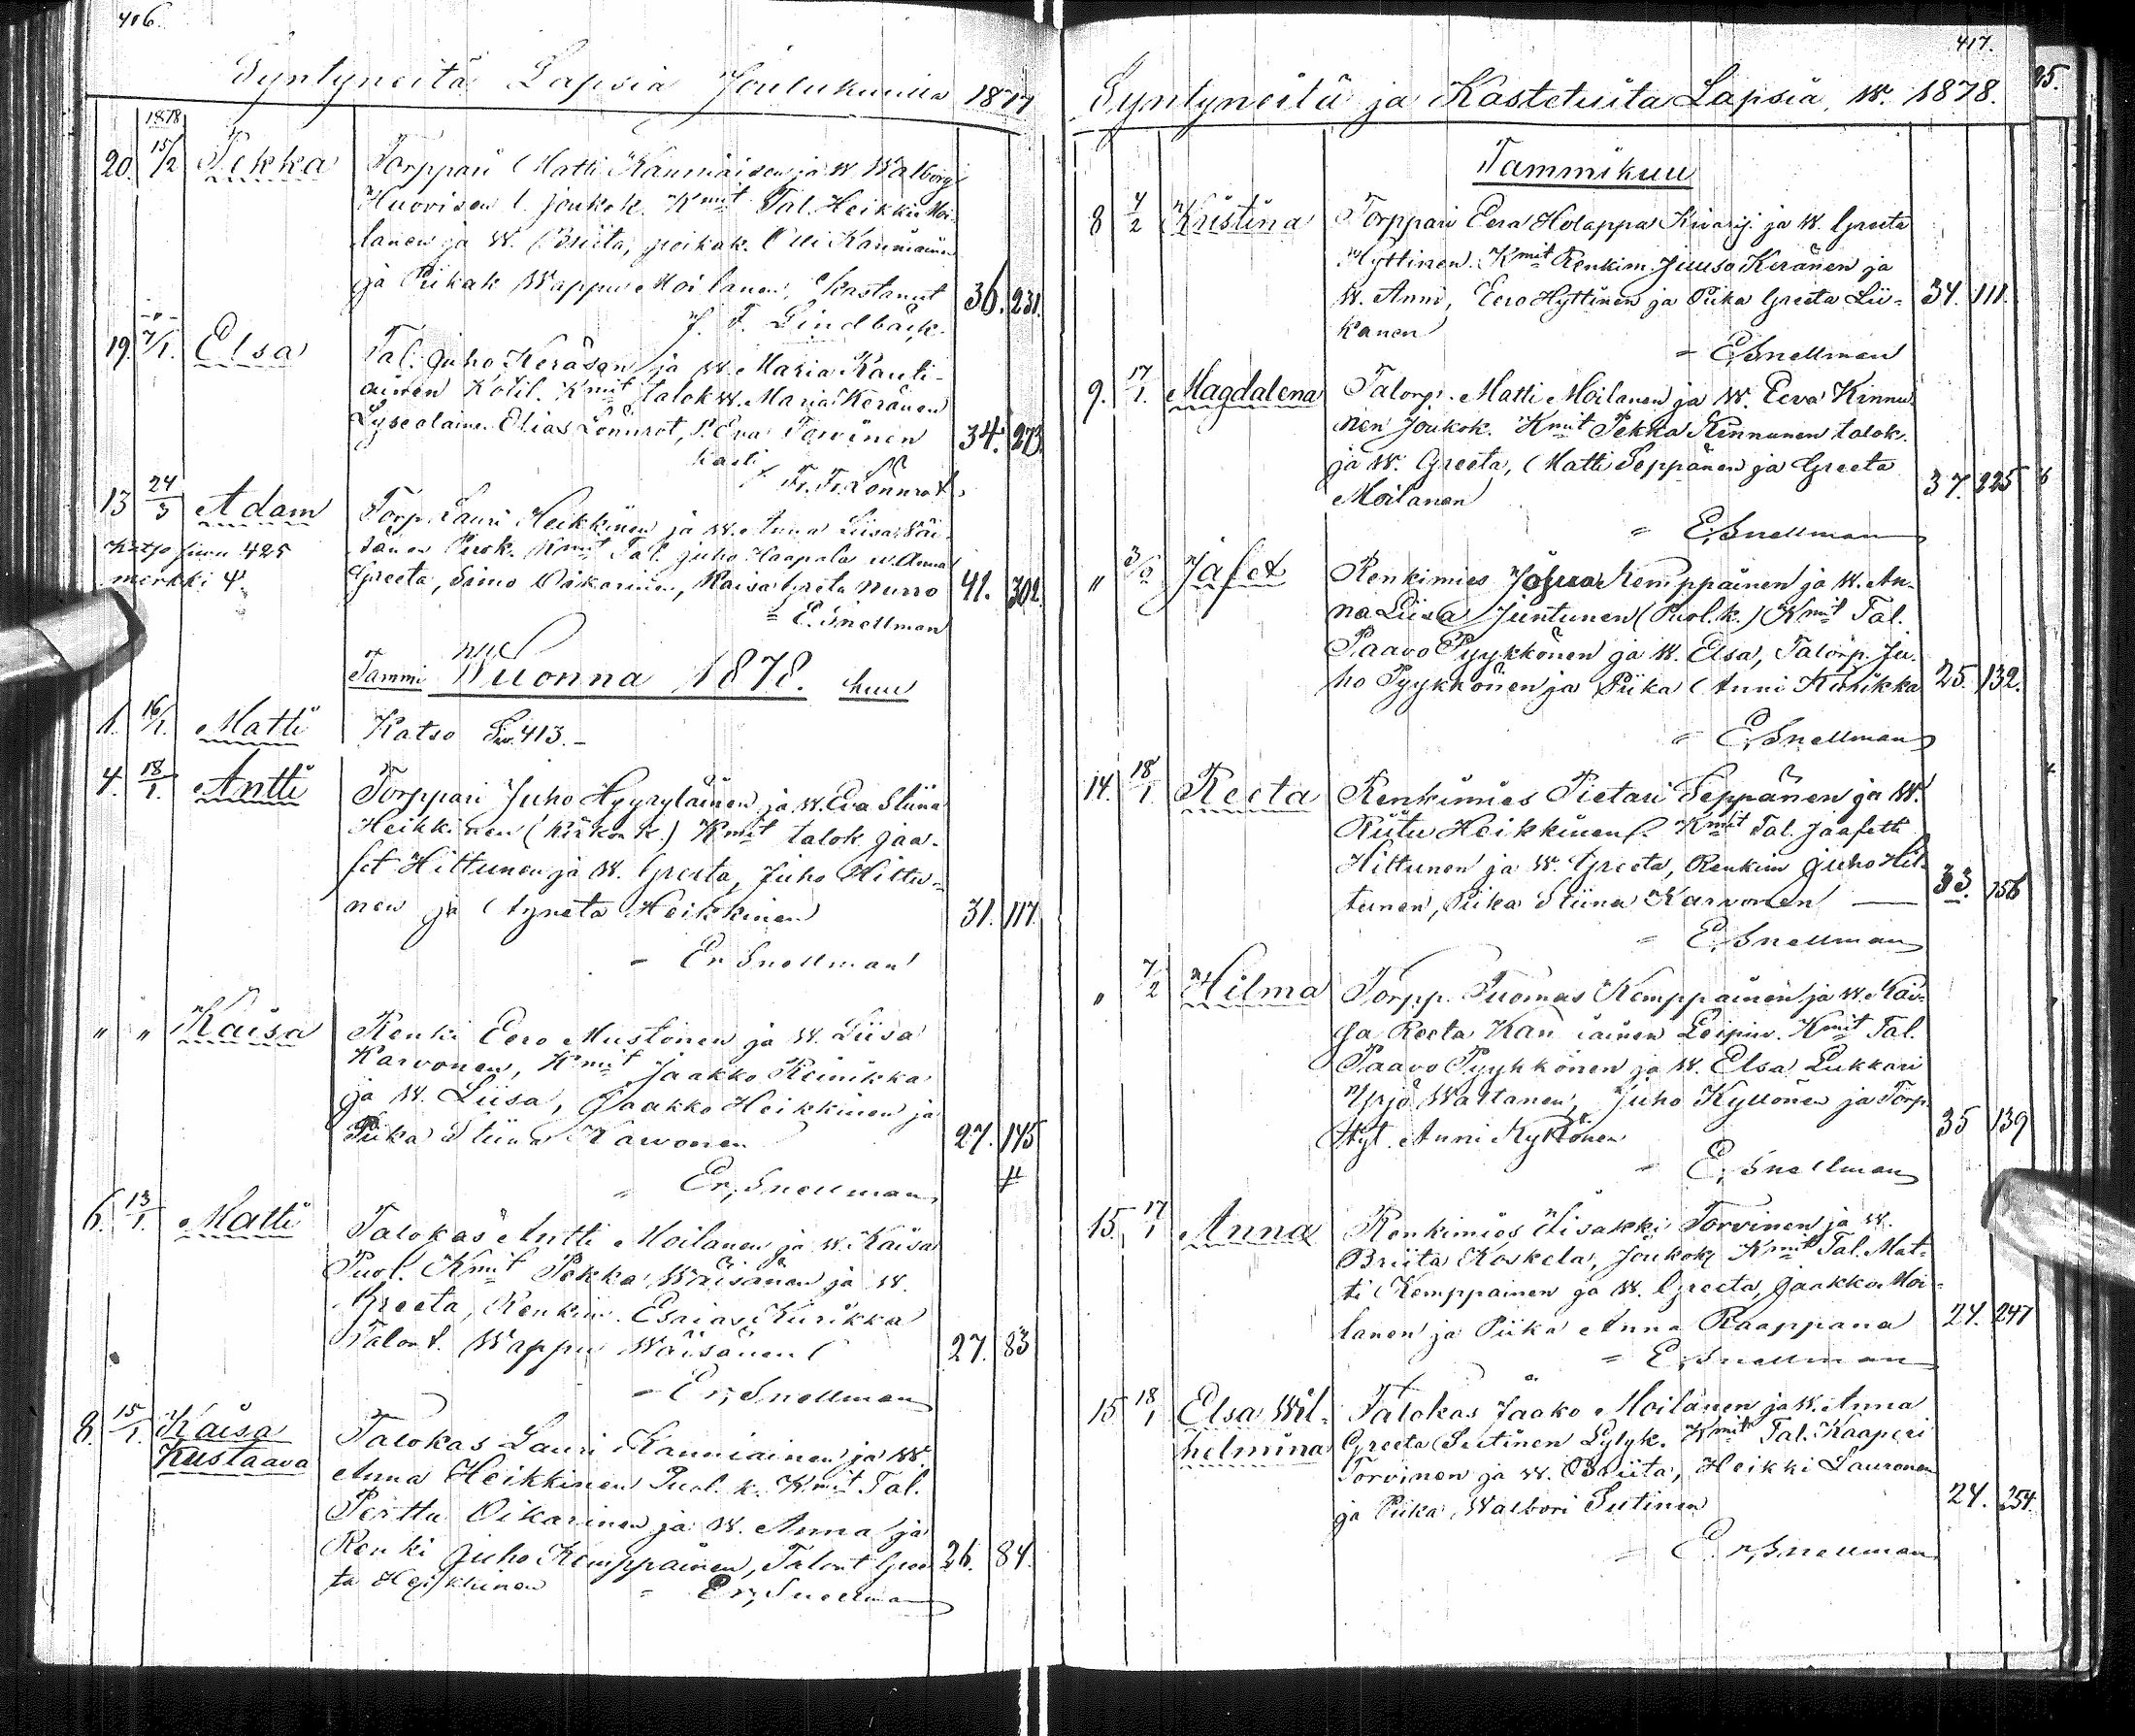 406.
Syntyneitä Lapsia Joulukuulla 1877
1878
20. 15/2 Pekka Torppari Matti Kanniaisen ja w. Walborg
Huovisen l. Joukok. Kmit Tal. Heikki Moi-
lanen ja w. Briita, poikak. Olli Kanniainen
ja Piikak Wappu Moilanen, Kastanut 36. 231.
J. F. Lindbäck.
19. 7/1. Elsa Tal. Juho Keräsen ja w. Maria Kauti-
ainen Kotil. Kmit talok w. Maria Keränen
Lyseolainen Elias Lönnrot, P. Eva Torvinen 34. 273.
kasti
Fr. Fr. Lönnrot.
13 24/3 Adam Torp. Lauri Heikkinen ja w. Anna Liisa Väi-
katso siwu 425 sänen Puok. Kmit Tal. Juho Haapala w. Anna
merkki 4. Greeta, Simo Oikarinen, Kaisa Greta Nurro 41. 302.
= E. Snellman
Tammi Wuonna 1878. kuu
1. 16/1. Matti Katso Siv. 413.-
4. 18/1. Antti Torppari Juho Hyyryläinen ja w. Eva Stiina
Heikkinen (kirkonk.) Kmit talok Jaa-
fet Hiltunen ja w. Greeta, Juho Hiltu-
nen ja Agneta Heikkinen 31. 117.
= Er Snellman
" " Kaisa Renki Eero Mustonen ja w. Liisa
Karvonen, Kmit Jaakko Reinikka
ja w. Liisa, Jaakko Heikkinen ja
Piika Stiina Karvonen 27. 145
= Er, Snellman #
6. 13/1. Matti Talokas Antti Moilanen ja w. Kaisa
Puol. Kmit Pekka Wäisänen ja w.
Greeta, Renkim. Esaias Kurikka
Talont. Wappu Wäisänen 27. 83
= Er, Snellman
8. 15/1. Kaisa Talokas Lauri Kanniainen ja w.
Kustaava Anna Heikkinen Puol. k. Kmit Tal.
Perttu Oikarinen ja w. Anna ja
Renki Juho Kemppainen, Talont Gree- 26. 84.
ta Heikkinen = Er, Snellman
417.
25.
Syntyneitä ja Kastetuita Lapsia, w. 1878.
Tammikuu
8 4/2 Kristina Torppari Eera Holappa Kivarij. ja w. Greeta
Hyttinen. Kmit Renkim. Juuso Keränen ja
w. Anni, Eero Hyttinen ja Piika Greeta Lii- 34. 111.
kanen
= E. Snellman
9. 17/1. Magdalena Talonp. Matti Moilanen ja w. Eeva Kinnu-
nen Joukok. Kmit Pekka Kinnunen talok.
ja w. Greeta, Matti Seppänen ja Greeta
Moilanen 37. 225
= E, Snellman
" 3/2 Jafet Renkimies Josua Kemppainen ja w. An-
na Liisa Juntunen (Puol. k.) Kmit Tal.
Paavo Pyykkönen ja w. Elsa, Talonp. Ju-
ho Pyykkönen ja Piika Anni Kurikka 25. 132.
= E, Snellman
14. 18/1. Reeta Renkimies Pietari Seppänen ja w.
Riitu Heikkinen. Kmit Tal. Jaafetti
Hiltunen ja w. Greeta, Renkim Juho Hil-
tunen, Piika Stiina Karvonen — 33. 156
= E. Snellman
" 7/2 Hilma Torpp. Tuomas Kemppainen ja w. Kai-
sa Reeta Kan iainen Leipiv. Kmit Tal.
Paavo Pyykkönen ja w. Elsa Lukkari
Yrjö Wattanen, Juho Kyllönen ja Torp.
tyt. Anni Kyllönen 35 139
= E, Snellman
15. 17/1 Anna Renkimies Iisakki Torvinen ja w.
Briita Koskela, Joukok. Kmit Tal. Mat-
ti Kemppainen ja w. Greeta, Jaakko Moi-
lanen ja Piika Anna Raappana 24. 247
= E, Snellman
15 18/1 Elsa Wil- Talokas Jaako Moilanen ja w. Anna
helmina Greeta Sutinen Lylyk. Kmit Tal. Kaaperi
Torvinen ja w. Briita, Heikki Lauronen
ja Piika Walbori Sutinen 24. 254.
= E. r, Snellman